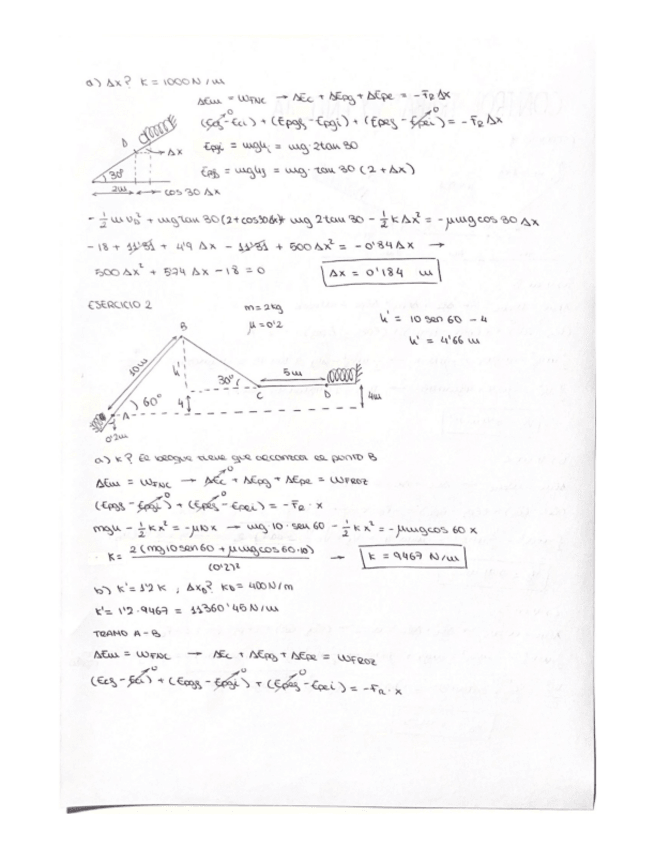 a) Δx? K = 1000 N/m
ΔEm = WFNC → ΔEc + ΔEpg + ΔEpe = -FR Δx
(Ecf - Eci) + (Epgf - Epgi) + (Epef - Epei) = -FR Δx
Epgi = mghi = mg·2tan 30
Epf = mghf = mg·tan 30 (2 + Δx)
D
Δx
30°
2m
cos 30 Δx
- 1/2 m vD² + mg tan 30 (2+cos30Δx) mg 2 tan 30 - 1/2 k Δx² = -μmg cos 30 Δx
-18 + 11'31 + 4'9 Δx - 11'31 + 500 Δx² = -0'84 Δx →
500 Δx² + 574 Δx - 18 = 0
Δx = 0'184 m
EJERCICIO 2
m = 2kg
μ = 0'2
h' = 10 sen 60 - 4
h' = 4'66 m
B
10m
h'
30°
5m
C
D
A
60°
4
4m
0'2m
a) K? El bloque tiene que alcanzar el punto B
ΔEm = WFNC → ΔEc + ΔEpg + ΔEpe = WFROZ
(Epgf - Epgi) + (Epef - Epei) = -FR · x
mgh - 1/2 Kx² = -μNx → mg 10·sen 60 - 1/2 Kx² = -μmg cos 60 x
K = 2(mg10sen60 + μmg cos 60·10) / (0'2)² → K = 9467 N/m
b) K' = 1'2 K, ΔxD? KD = 400 N/m
K' = 1'2 · 9467 = 11360'45 N/m
TRAMO A-B
ΔEm = WFNC → ΔEc + ΔEpg + ΔEpe = WFROZ
(Ecf - Eci) + (Epgf - Epgi) + (Epef - Epei) = -FR · x